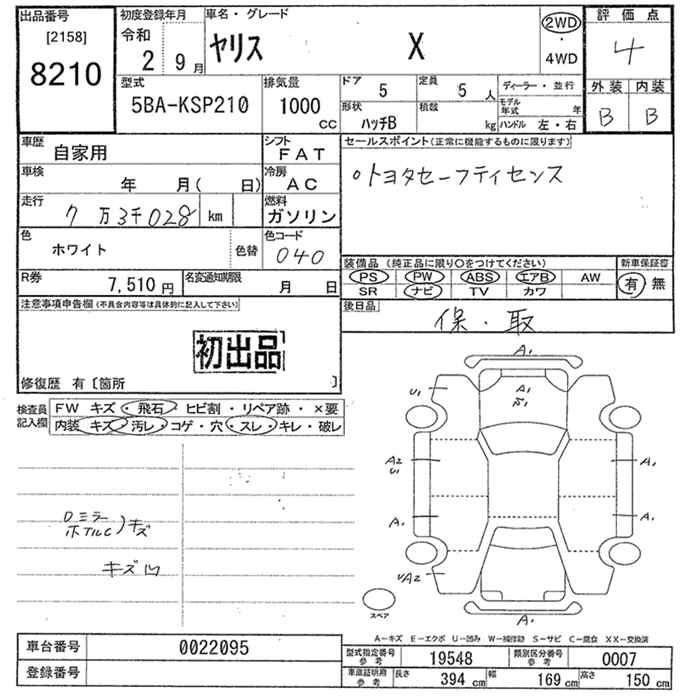 出品番号 [2158] 8210
初度登録年月 令和 2 9月
車名・グレード ヤリス X
2WD ・ 4WD
評価点 4
外装 B 内装 B
型式 5BA-KSP210
排気量 1000 CC
ドア 5 定員 5 人
形状 ハッチB 積載 kg
ディーラー・並行
モデル年式 年
ハンドル 左・右
車歴 自家用
シフト FAT
車検 年 月( 日)
冷房 AC
走行 7万3千028 km
燃料 ガソリン
色 ホワイト 色替
色コード 040
R券 7,510円
名変通知期限 月 日
セールスポイント(正常に機能するものに限ります)
○トヨタセーフティセンス
装備品 (純正品に限り○をつけてください) 新車保証書
PS PW ABS エアB AW 有 無
SR ナビ TV カワ
後日品 保・取
注意事項申告欄(不具合内容等は具体的に記入して下さい)
初出品
修復歴 有〔箇所 〕
検査員記入欄
FW キズ・飛石・ヒビ割・リペア跡・×要
内装 キズ・汚レ・コゲ・穴・スレ・キレ・破レ
Dミラー
ホイルC)キズ
キズ凹
A1
U1 A1
A2 U A1
A1 A1
A1
スペア
A-キズ E-エクボ U-凹み W-補修跡 S-サビ C-腐食 XX-交換済
車台番号 0022095
登録番号
型式指定番号 参考 19548 類別区分番号 参考 0007
車庫証明用 参考 長さ 394 cm 幅 169 cm 高さ 150 cm